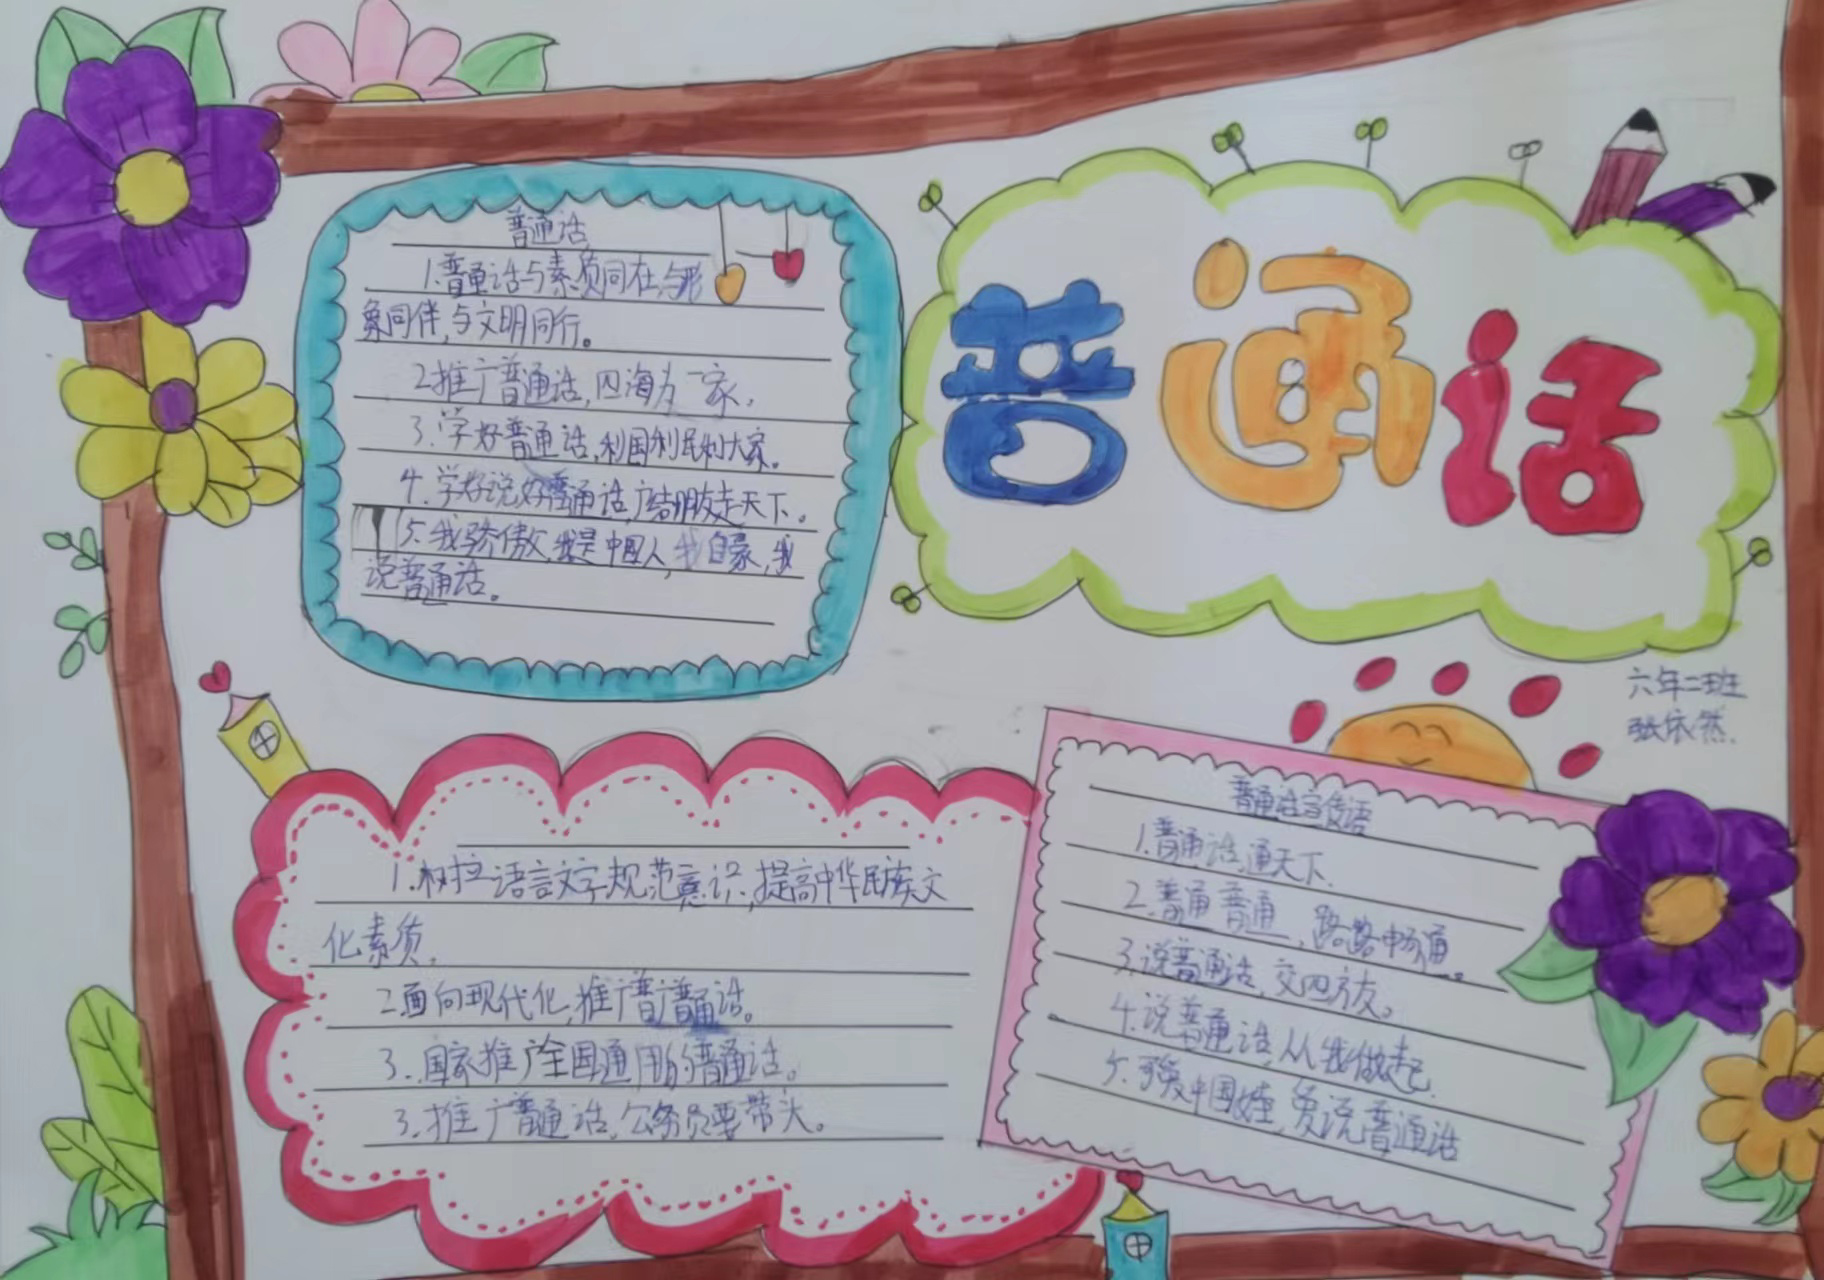 普通话
1.普通话与素质同在,与形
象同伴,与文明同行。
2推广普通话,四海为一家。
3.学好普通话,利国利民利大家。
4.学好说好普通话,广结朋友走天下。
5.我骄傲,我是中国人,我自豪,我
说普通话。
普通话
六年二班
张依然.
1.树拉语言文字规范意识,提高中华民族文
化素质.
2面向现代化,推广普通话。
3.国家推广全国通用的普通话。
3.推广普通话,公务员要带头。
普通话宣传语
1.普通话,通天下.
2.普通普通,路路畅通。
3.说普通话,交四方友。
4.说普通话,从我做起.
5.爱中国娃,爱说普通话